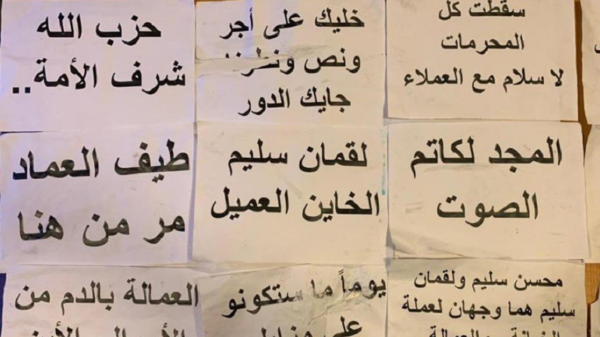 سقطت كل
المحرمات
لا سلام مع العملاء
خليك على أجر
ونص
جايك الدور
حزب الله
شرف الأمة..
المجد لكاتم
الصوت
لقمان سليم
الخاين العميل
طيف العماد
مر من هنا
محسن سليم ولقمان
سليم هما وجهان لعملة
يوماً ما ستكونو
على
العمالة بالدم من